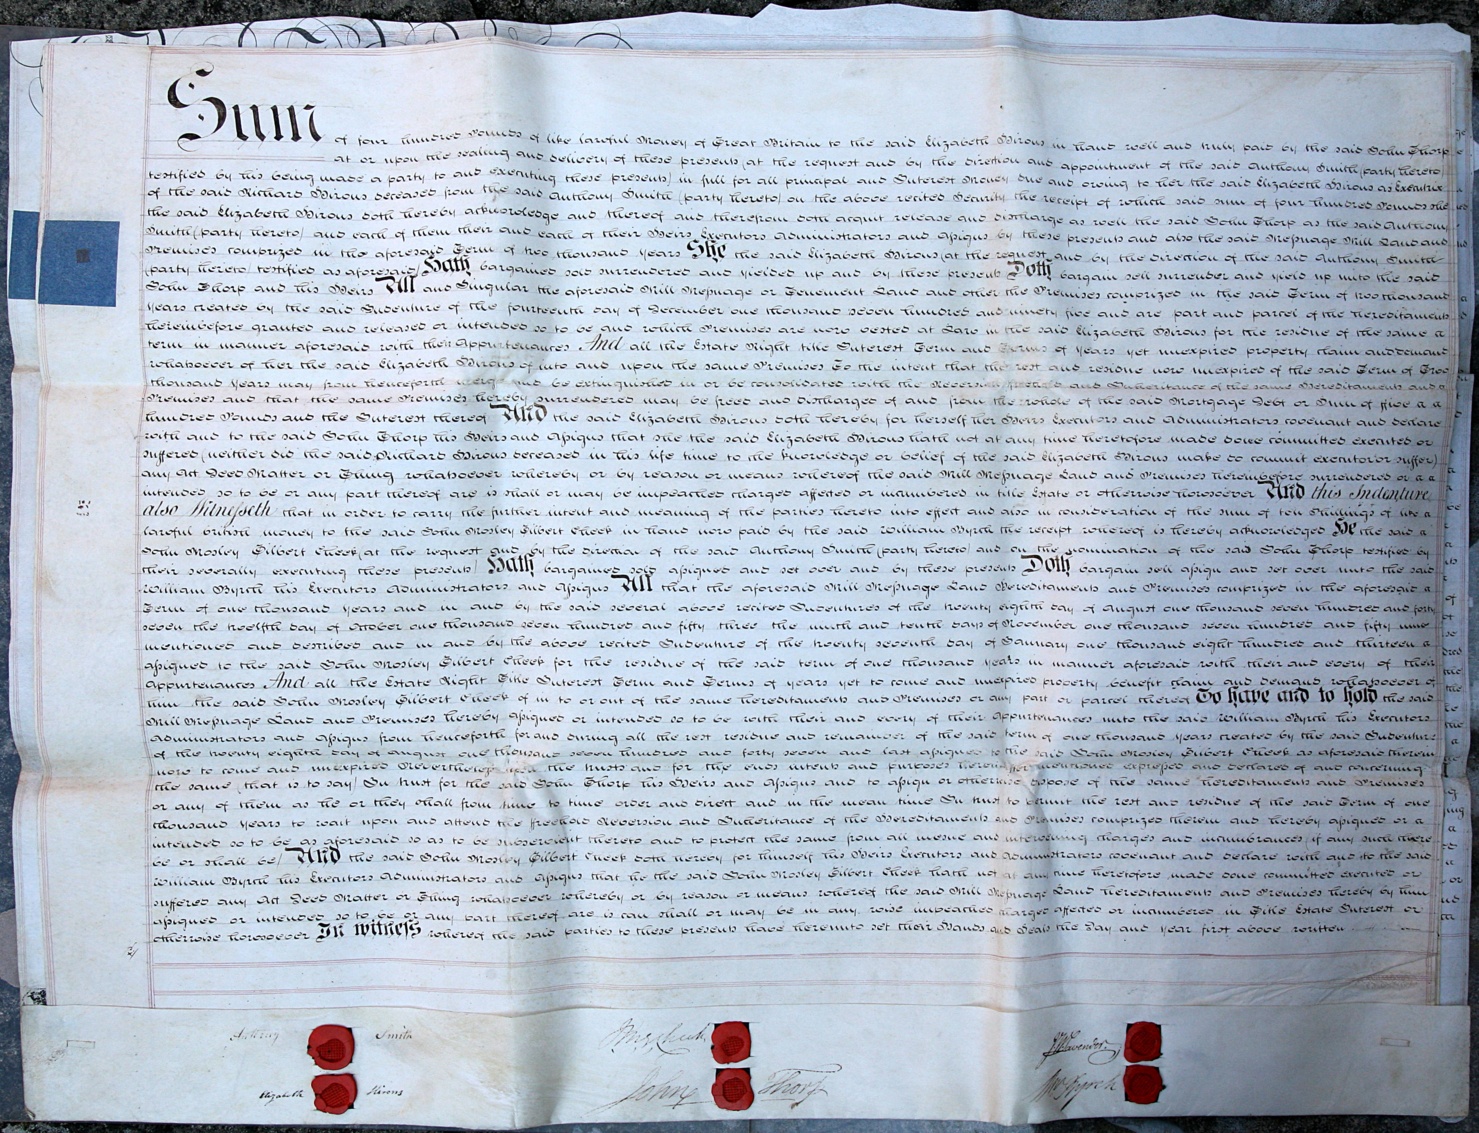 Sum of four hundred Pounds of like lawful Money of Great Britain to the said Elizabeth Hirons in hand well and truly paid by the said John Thorp
at or upon the sealing and delivery of these presents (at the request and by the direction and appointment of the said Anthony Smith (party hereto)
testified by his being made a party to and executing these presents) in full for all principal and Interest Money due and owing to her the said Elizabeth Hirons as Executrix
of the said Richard Hirons deceased from the said Anthony Smith (party hereto) on the above recited Security the receipt of which said sum of four hundred Pounds she
the said Elizabeth Hirons doth hereby acknowledge and thereof and therefrom doth acquit release and discharge as well the said John Thorp as the said Anthony
Smith (party hereto) and each of them their and each of their Heirs Executors Administrators and Assigns by these presents and also the said Messuage Mill Land and
Premises comprized in the aforesaid Term of two thousand years She the said Elizabeth Hirons (at the request and by the direction of the said Anthony Smith
(party hereto) testified as aforesaid) Hath bargained sold surrendered and yielded up and by these presents Doth bargain sell surrender and yield up unto the said
John Thorp and his Heirs All and Singular the aforesaid Mill Messuage or Tenement Land and other the Premises comprized in the said Term of two thousand
years created by the said Indenture of the fourteenth day of December one thousand seven hundred and ninety five and are part and parcel of the hereditaments
hereinbefore granted and released or intended so to be and which Premises are now vested at Law in the said Elizabeth Hirons for the residue of the same
term in manner aforesaid with their Appurtenances And all the Estate Right title Interest Term and Terms of years yet unexpired property claim and demand
whatsoever of her the said Elizabeth Hirons of into and upon the same Premises To the intent that the rest and residue now unexpired of the said Term of Two
thousand years may from henceforth merge and be extinguished in or be consolidated with the Reversion freehold and Inheritance of the same Hereditaments and
Premises and that the same Premises hereby surrendered may be freed and discharged of and from the whole of the said Mortgage Debt or Sum of ffive
hundred Pounds and the Interest thereof And the said Elizabeth Hirons doth hereby for herself her Heirs Executors and Administrators covenant and declare
with and to the said John Thorp his Heirs and Assigns that she the said Elizabeth Hirons hath not at any time heretofore made done committed executed or
suffered (neither did the said Richard Hirons deceased in his life time to the knowledge or belief of the said Elizabeth Hirons make do commit execute or suffer)
any Act Deed Matter or Thing whatsoever whereby or by reason or means whereof the said Mill Messuage Land and Premises hereinbefore surrendered or
intended so to be or any part thereof are is shall or may be impeached charged affected or incumbered in title Estate or otherwise howsoever And this Indenture
also Witnesseth that in order to carry the further intent and meaning of the parties hereto into effect and also in consideration of the sum of ten Shillings of like
lawful british money to the said John Mosley Gilbert Cheek in hand now paid by the said William Hyrch the receipt whereof is hereby acknowledged He the said
John Mosley Gilbert Cheek (at the request and by the direction of the said Anthony Smith (party hereto) and on the nomination of the said John Thorp testified by
their severally executing these presents) Hath bargained sold assigned and set over and by these presents Doth bargain sell assign and set over unto the said
William Hyrch his Executors Administrators and Assigns All that the aforesaid Mill Messuage Land Hereditaments and Premises comprized in the aforesaid
Term of one thousand years and in and by the said several above recited Indentures of the twenty eighth day of August one thousand seven hundred and forty
seven the twelfth day of October one thousand seven hundred and fifty three the ninth and tenth days of November one thousand seven hundred and fifty nine
mentioned and described and in and by the above recited Indenture of the twenty seventh day of January one thousand eight hundred and thirteen
assigned to the said John Mosley Gilbert Cheek for the residue of the said term of one thousand years in manner aforesaid with their and every of their
Appurtenances And all the Estate Right Title Interest Term and Terms of years yet to come and unexpired property benefit claim and demand whatsoever of
him the said John Mosley Gilbert Cheek of in to or out of the same hereditaments and Premises or any part or parcel thereof To have and to hold the said
Mill Messuage Land and Premises hereby assigned or intended so to be with their and every of their Appurtenances unto the said William Hyrch his Executors
Administrators and Assigns from henceforth for and during all the rest residue and remainder of the said term of one thousand years created by the said Indenture
of the twenty eighth day of august one thousand seven hundred and forty seven and last assigned to the said John Mosley Gilbert Cheek as aforesaid therein
now to come and unexpired Nevertheless upon the trusts and for the ends intents and purposes hereinafter mentioned expressed and declared of and concerning
the same (that is to say) In trust for the said John Thorp his Heirs and Assigns and to assign or otherwise dispose of the same hereditaments and Premises
or any of them as he or they shall from time to time order and direct and in the mean time In trust to permit the rest and residue of the said Term of one
thousand years to wait upon and attend the ffreehold Reversion and Inheritance of the Hereditaments and Premises comprized therein and hereby assigned or
intended so to be as aforesaid so as to be subservient thereto and to protect the same from all mesne and intervening charges and incumbrances (if any such there
be or shall be) And the said John Mosley Gilbert Cheek doth hereby for himself his Heirs Executors and Administrators covenant and declare with and to the said
William Hyrch his Executors Administrators and Assigns that he the said John Mosley Gilbert Cheek hath not at any time heretofore made done committed executed or
suffered any Act Deed Matter or Thing whatsoever whereby or by reason or means whereof the said Mill Messuage Land hereditaments and Premises hereby by him
assigned or intended so to be or any part thereof are is can shall or may be in any wise impeached charged affected or incumbered in Title Estate Interest or
otherwise howsoever In witness whereof the said parties to these presents have hereunto set their Hands and Seals the Day and Year first above written
Anthony Smith
Elizabeth Hirons
John Thorp
Wm Hyrch